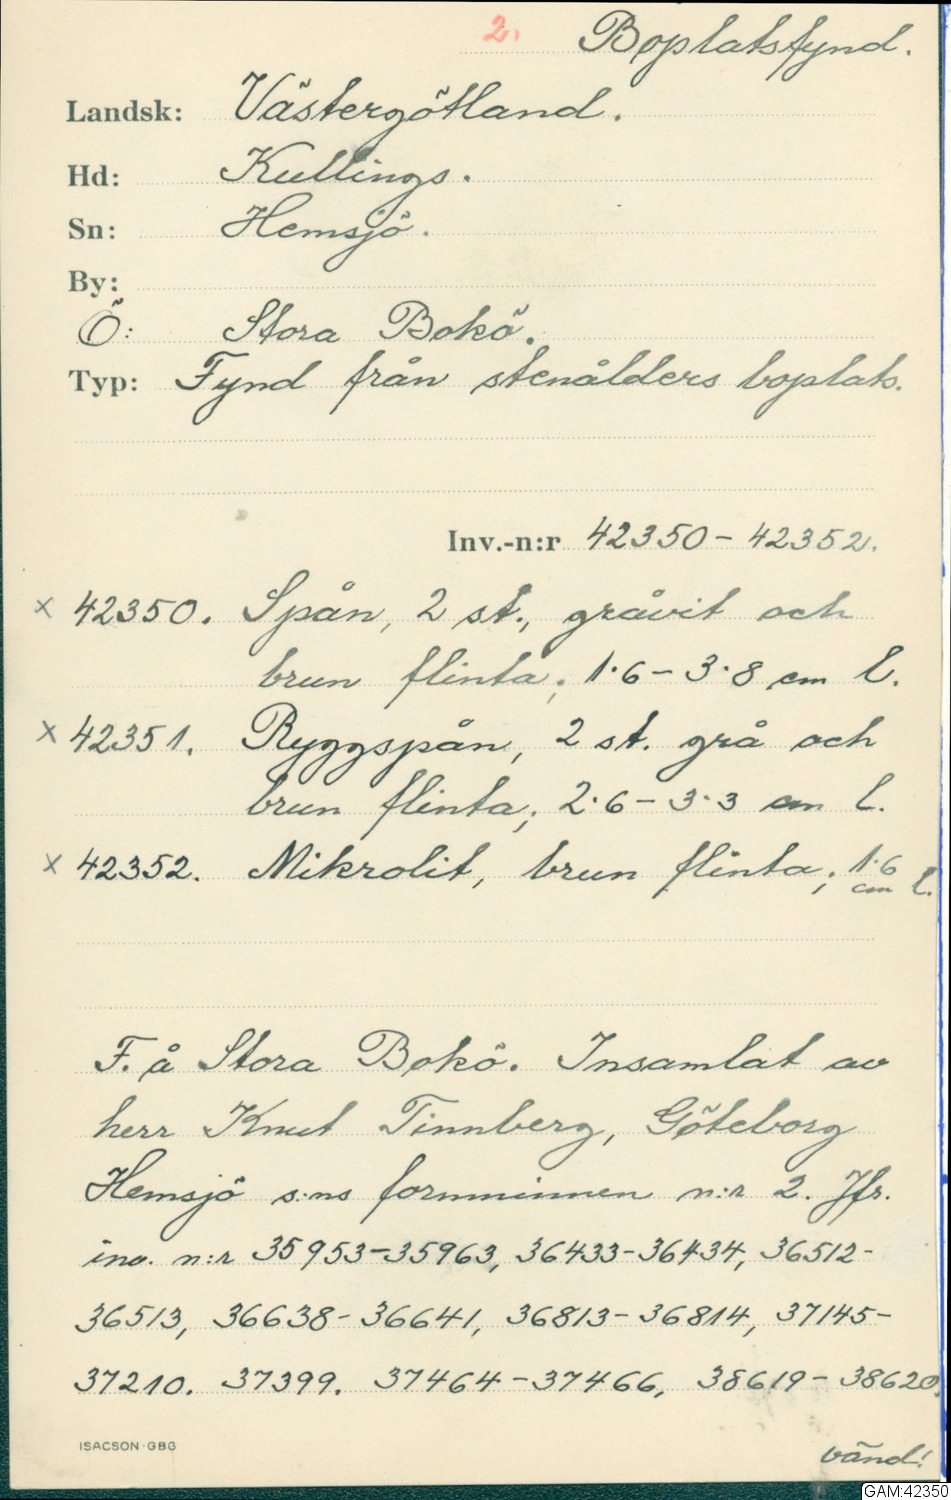 2. Boplatsfynd.
Landsk: Västergötland.
Hd: Kullings.
Sn: Hemsjö.
By:
Ö: Stora Bokö.
Typ: Fynd från stenålders boplats.
Inv.-n:r 42350-42352.
x 42350. Spån, 2 st., gråvit och
brun flinta; 1·6-3·8 cm l.
x 42351. Ryggspån, 2 st. grå och
brun flinta; 2·6-3·3 cm l.
x 42352. Mikrolit, brun flinta; 1·6 cm l.
F. å Stora Bokö. Insamlat av
herr Knut Tinnberg, Göteborg
Hemsjö s:ns fornminnen n:r 2. Jfr.
inv. n:r 35953-35963, 36433-36434, 36512-
36513, 36638-36641, 36813-36814, 37145-
37210. 37399. 37464-37466, 38619-38620.
ISACSON·GBG
vänd!
GAM:42350